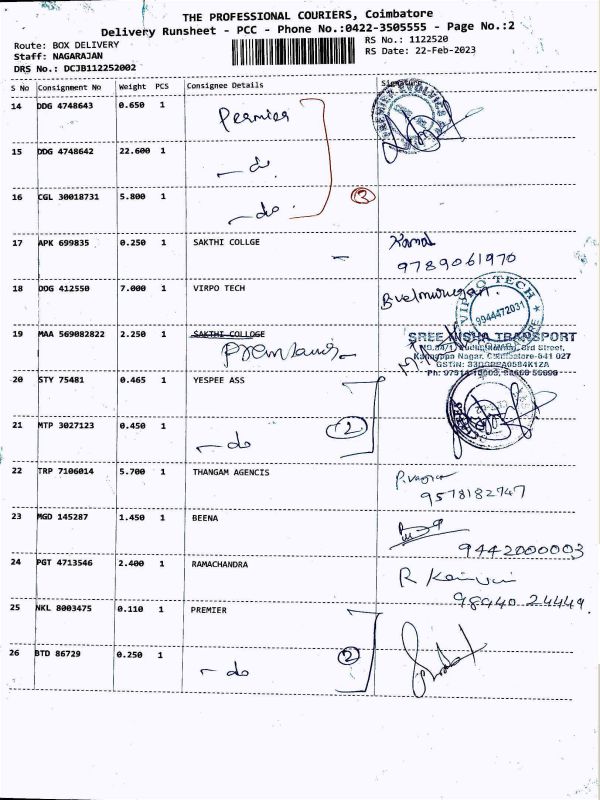 THE PROFESSIONAL COURIERS, Coimbatore
Delivery Runsheet - PCC - Phone No.:0422-3505555 - Page No.:2
Route: BOX DELIVERY RS No.: 1122520
Staff: NAGARAJAN RS Date: 22-Feb-2023
DRS No.: DCJB112252002
S No Consignment No Weight PCS Consignee Details Signature
14 DDG 4748643 0.650 1 Premier
15 DDG 4748642 22.600 1 - do
16 CGL 30018731 5.800 1 - do - 3
17 APK 699835 0.250 1 SAKTHI COLLGE Kamal
9789061970
18 DDG 412550 7.000 1 VIRPO TECH Bvelmurugan
VIRPO TECH
9944472031
19 MAA 569082822 2.250 1 SAKTHI COLLOGE
SREE NISHA TRANSPORT
3rd Street,
Nagar, Coimbatore-641 027
20 STY 75481 0.465 1 YESPEE ASS
21 MTP 3027123 0.450 1 - do 2
22 TRP 7106014 5.700 1 THANGAM AGENCIS
9578182747
23 MGD 145287 1.450 1 BEENA
9442000003
24 PGT 4713546 2.400 1 RAMACHANDRA R
98940 24449
25 NKL 8003475 0.110 1 PREMIER
26 BTD 86729 0.250 1 - do 2